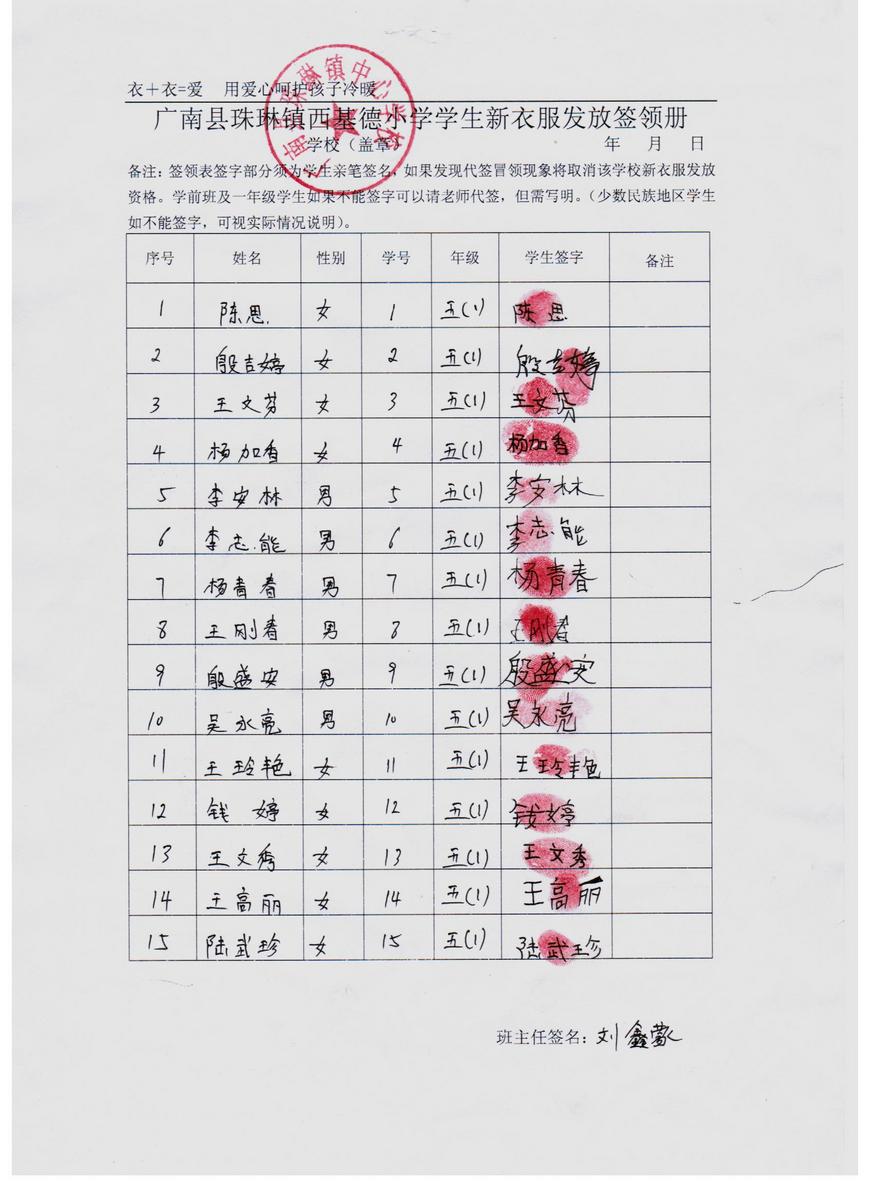 衣＋衣=爱 用爱心呵护孩子冷暖
广南县珠琳镇西基德小学学生新衣服发放签领册
学校（盖章） 年 月 日
广南县珠琳镇中心学校
备注：签领表签字部分须为学生亲笔签名，如果发现代签冒领现象将取消该学校新衣服发放
资格。学前班及一年级学生如果不能签字可以请老师代签，但需写明。（少数民族地区学生
如不能签字，可视实际情况说明）。
序号 姓名 性别 学号 年级 学生签字 备注
1 陈思 女 1 五(1) 陈思
2 殷吉婷 女 2 五(1) 殷吉婷
3 王文芬 女 3 五(1) 王文芬
4 杨加香 女 4 五(1) 杨加香
5 李安林 男 5 五(1) 李安林
6 李志能 男 6 五(1) 李志能
7 杨青春 男 7 五(1) 杨青春
8 王刚春 男 8 五(1) 王刚春
9 殷盛安 男 9 五(1) 殷盛安
10 吴永亮 男 10 五(1) 吴永亮
11 王玲艳 女 11 五(1) 王玲艳
12 钱婷 女 12 五(1) 钱婷
13 王文秀 女 13 五(1) 王文秀
14 王高丽 女 14 五(1) 王高丽
15 陆武珍 女 15 五(1) 陆武珍
班主任签名：刘鑫蒙